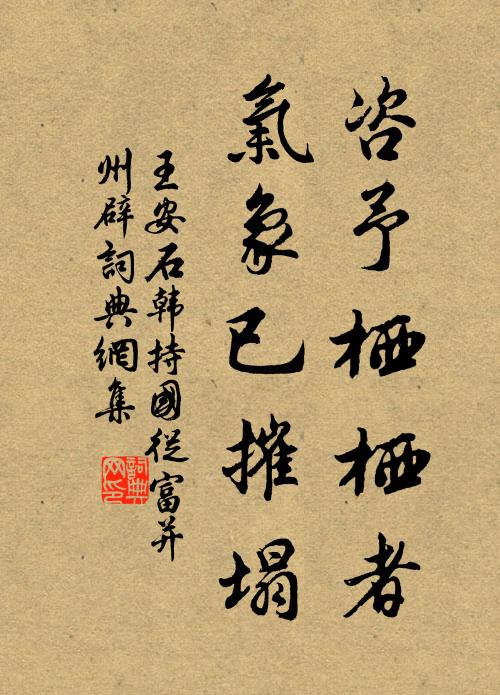 咨予栖栖者
氣象已摧塌
王安石韩持國從富并
州辟詞典網集
詞典
网印